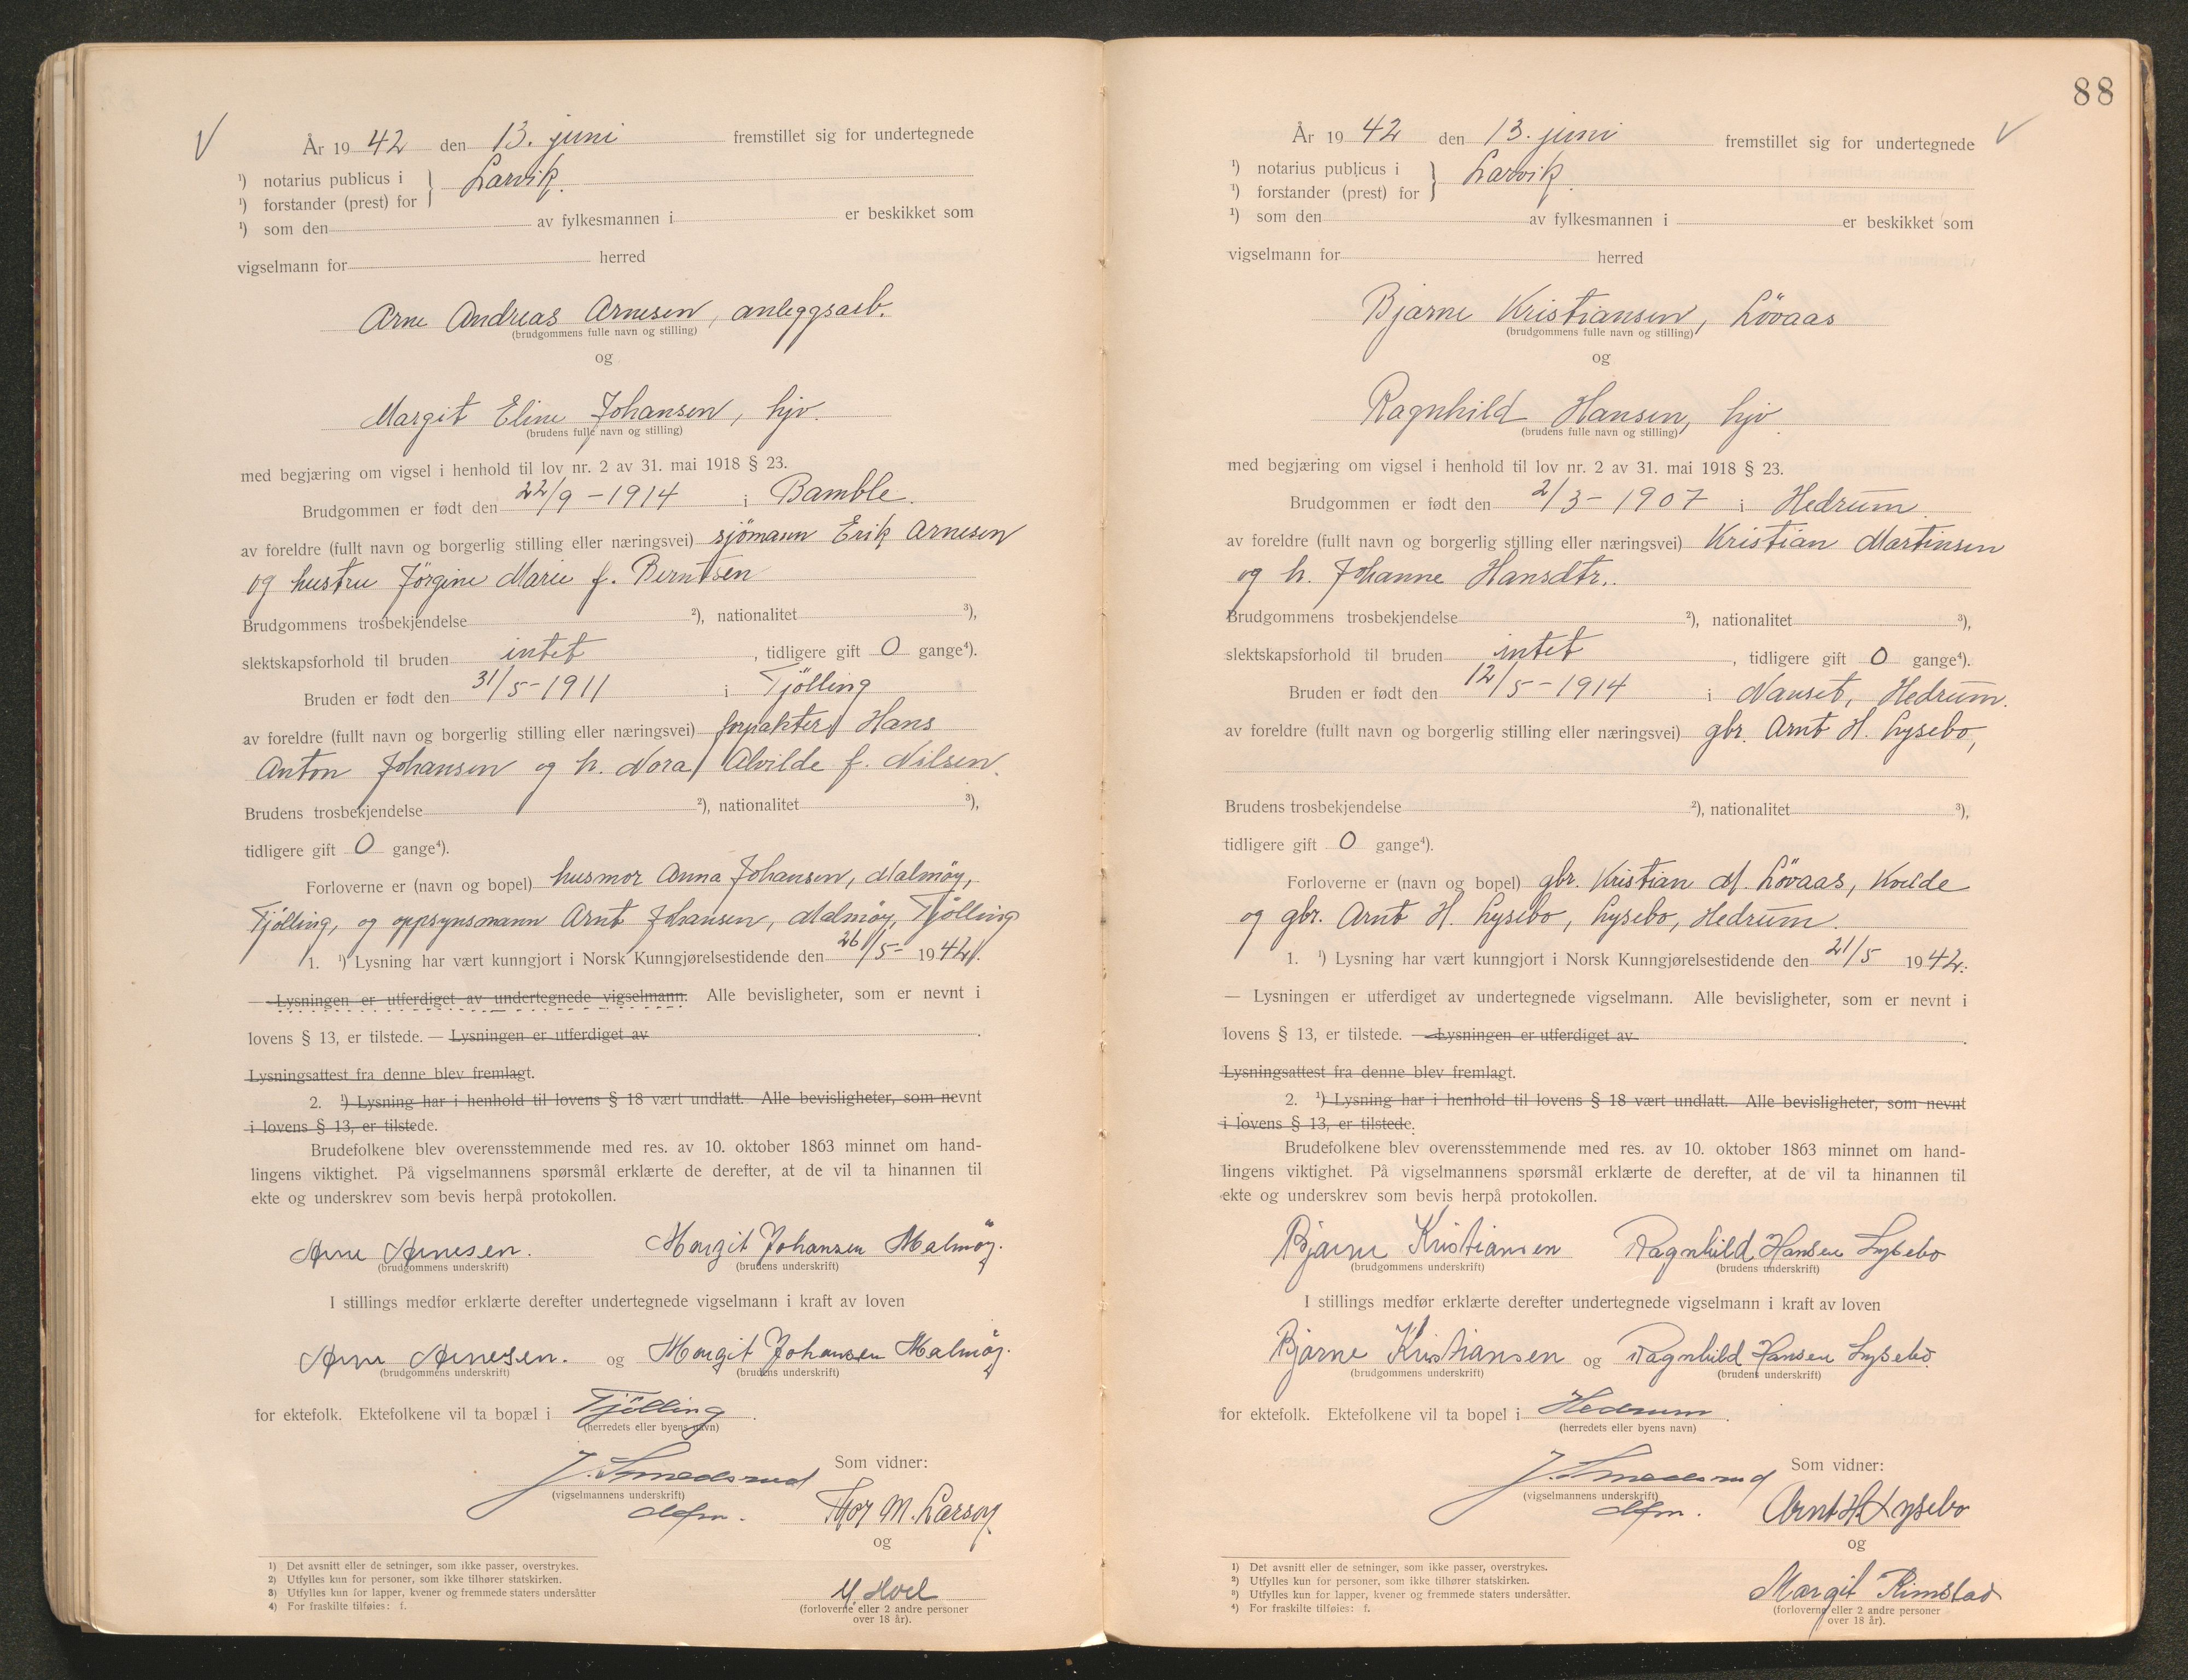 År 19 42 den 13. juni fremstillet sig for undertegnede
¹) notarius publicus i } Larvik.
¹) forstander (prest) for
¹) som den av fylkesmannen i er beskikket som
vigselmann for herred
Arne Andreas Arnesen, anleggsarb.
(brudgommens fulle navn og stilling)
og
Margit Eline Johansen, hjv.
(brudens fulle navn og stilling)
med begjæring om vigsel i henhold til lov nr. 2 av 31. mai 1918 § 23.
Brudgommen er født den 22/9 - 1914 i Bamble.
av foreldre (fullt navn og borgerlig stilling eller næringsvei) sjömann Erik Arnesen
og hustru Jörgine Marie f. Berntsen
Brudgommens trosbekjendelse ²), nationalitet ³),
slektskapsforhold til bruden intet, tidligere gift 0 gange⁴).
Bruden er født den 31/5 - 1911 i Tjölling
av foreldre (fullt navn og borgerlig stilling eller næringsvei) forpakter Hans
Anton Johansen og h. Nora Alvilde f. Nilsen.
Brudens trosbekjendelse ²), nationalitet ³),
tidligere gift 0 gange⁴).
Forloverne er (navn og bopel) husmor Anna Johansen, Malmöy,
Tjölling, og oppsynsmann Arnt Johansen, Malmöy, Tjölling
1. ¹) Lysning har vært kunngjort i Norsk Kunngjørelsestidende den 26/5- 1942.
— Lysningen er utferdiget av undertegnede vigselmann. Alle bevisligheter, som er nevnt i
lovens § 13, er tilstede. — Lysningen er utferdiget av .
Lysningsattest fra denne blev fremlagt.
2. ¹) Lysning har i henhold til lovens § 18 vært undlatt. Alle bevisligheter, som nevnt
i lovens § 13, er tilstede.
Brudefolkene blev overensstemmende med res. av 10. oktober 1863 minnet om hand-
lingens viktighet. På vigselmannens spørsmål erklærte de derefter, at de vil ta hinannen til
ekte og underskrev som bevis herpå protokollen.
Arne Arnesen. Margit Johansen Malmöy.
(brudgommens underskrift) (brudens underskrift)
I stillings medfør erklærte derefter undertegnede vigselmann i kraft av loven
Arne Arnesen. og Margit Johansen Malmöy.
(brudgommens underskrift) (brudens underskrift)
for ektefolk. Ektefolkene vil ta bopæl i Tjölling.
(herredets eller byens navn)
J. Smedsrud Som vidner:
(vigselmannens underskrift)
Thor M. Larsen
og
M. Hoel
(forloverne eller 2 andre personer
over 18 år).
1) Det avsnitt eller de setninger, som ikke passer, overstrykes.
2) Utfylles kun for personer, som ikke tilhører statskirken.
3) Utfylles kun for lapper, kvener og fremmede staters undersåtter
4) For fraskilte tilføies: f.
88
År 19 42 den 13. juni fremstillet sig for undertegnede
¹) notarius publicus i } Larvik.
¹) forstander (prest) for
¹) som den av fylkesmannen i er beskikket som
vigselmann for herred
Bjarne Kristiansen, Lövaas
(brudgommens fulle navn og stilling)
og
Ragnhild Hansen, hjv.
(brudens fulle navn og stilling)
med begjæring om vigsel i henhold til lov nr. 2 av 31. mai 1918 § 23.
Brudgommen er født den 2/3 - 1907 i Hedrum.
av foreldre (fullt navn og borgerlig stilling eller næringsvei) Kristian Martinsen
og h. Johanne Hansdtr..
Brudgommens trosbekjendelse ²), nationalitet ³),
slektskapsforhold til bruden intet, tidligere gift 0 gange⁴).
Bruden er født den 12/5 - 1914 i Nanset, Hedrum.
av foreldre (fullt navn og borgerlig stilling eller næringsvei) gbr. Arnt H. Lysebo,
Brudens trosbekjendelse ²), nationalitet ³),
tidligere gift 0 gange⁴).
Forloverne er (navn og bopel) gbr. Kristian M. Lövaas, Kvelde
og gbr. Arnt H. Lysebo, Lysebo, Hedrum.
1. ¹) Lysning har vært kunngjort i Norsk Kunngjørelsestidende den 21/5 1942.
— Lysningen er utferdiget av undertegnede vigselmann. Alle bevisligheter, som er nevnt i
lovens § 13, er tilstede. — Lysningen er utferdiget av .
Lysningsattest fra denne blev fremlagt.
2. ¹) Lysning har i henhold til lovens § 18 vært undlatt. Alle bevisligheter, som nevnt
i lovens § 13, er tilstede.
Brudefolkene blev overensstemmende med res. av 10. oktober 1863 minnet om hand-
lingens viktighet. På vigselmannens spørsmål erklærte de derefter, at de vil ta hinannen til
ekte og underskrev som bevis herpå protokollen.
Bjarne Kristiansen Ragnhild Hansen Lysebo
(brudgommens underskrift) (brudens underskrift)
I stillings medfør erklærte derefter undertegnede vigselmann i kraft av loven
Bjarne Kristiansen og Ragnhild Hansen Lysebo.
(brudgommens underskrift) (brudens underskrift)
for ektefolk. Ektefolkene vil ta bopel i Hedrum.
(herredets eller byens navn)
J. Smedsrud Som vidner:
(vigselmannens underskrift)
Arnt H. Lysebo
og
Margit Rimstad
(forloverne eller 2 andre personer
over 18 år).
1) Det avsnitt eller de setninger, som ikke passer, overstrykes.
2) Utfylles kun for personer, som ikke tilhører statskirken.
3) Utfylles kun for lapper, kvener og fremmede staters undersåtter.
4) For fraskilte tilføies: f.